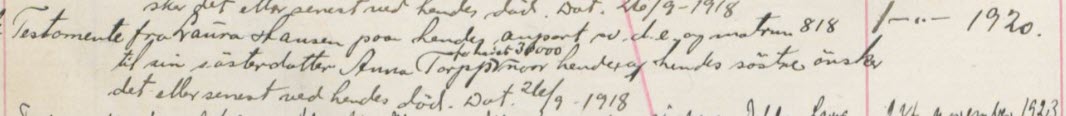 sker det eller senest ved hendes död. Dat. 26/9-1918
Testamente fra Laura Hansen paa hendes anpart v. d. e. og matrnr 818 1-"- 1920.
til sin sösterdatter Anna Torpp naar hendes og hendes söstre önsker
det eller senest ved hendes död. Dat. 26/9-1918
november 1923